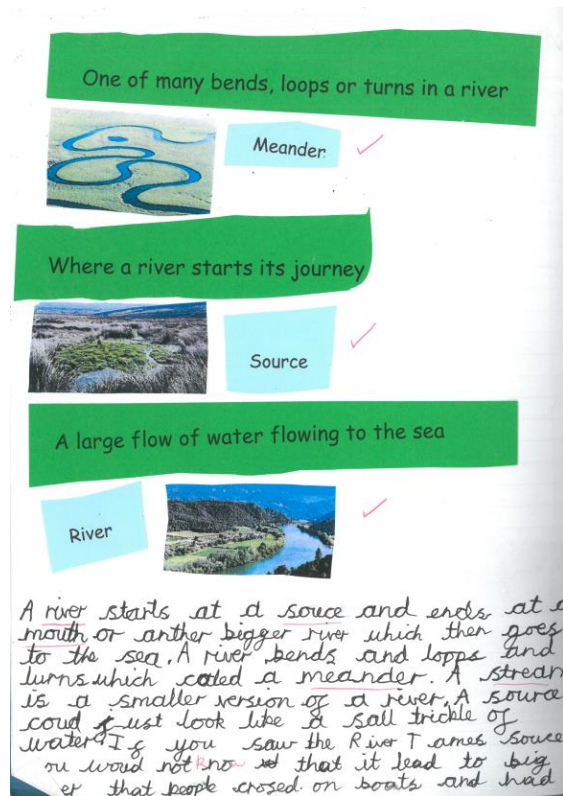 One of many bends, loops or turns in a river
Meander
Where a river starts its journey
Source
A large flow of water flowing to the sea
River
A river starts at a souce and ends at a
mouth or anther bigger river which then goes
to the sea. A river bends and lopps and
turns which caled a meander. A stream
is a smaller version of a river. A source
coud just look like a sall trickle of
water. If you saw the River Tames souce
ou woud not no that it lead to big
er that people crosed on boats and had